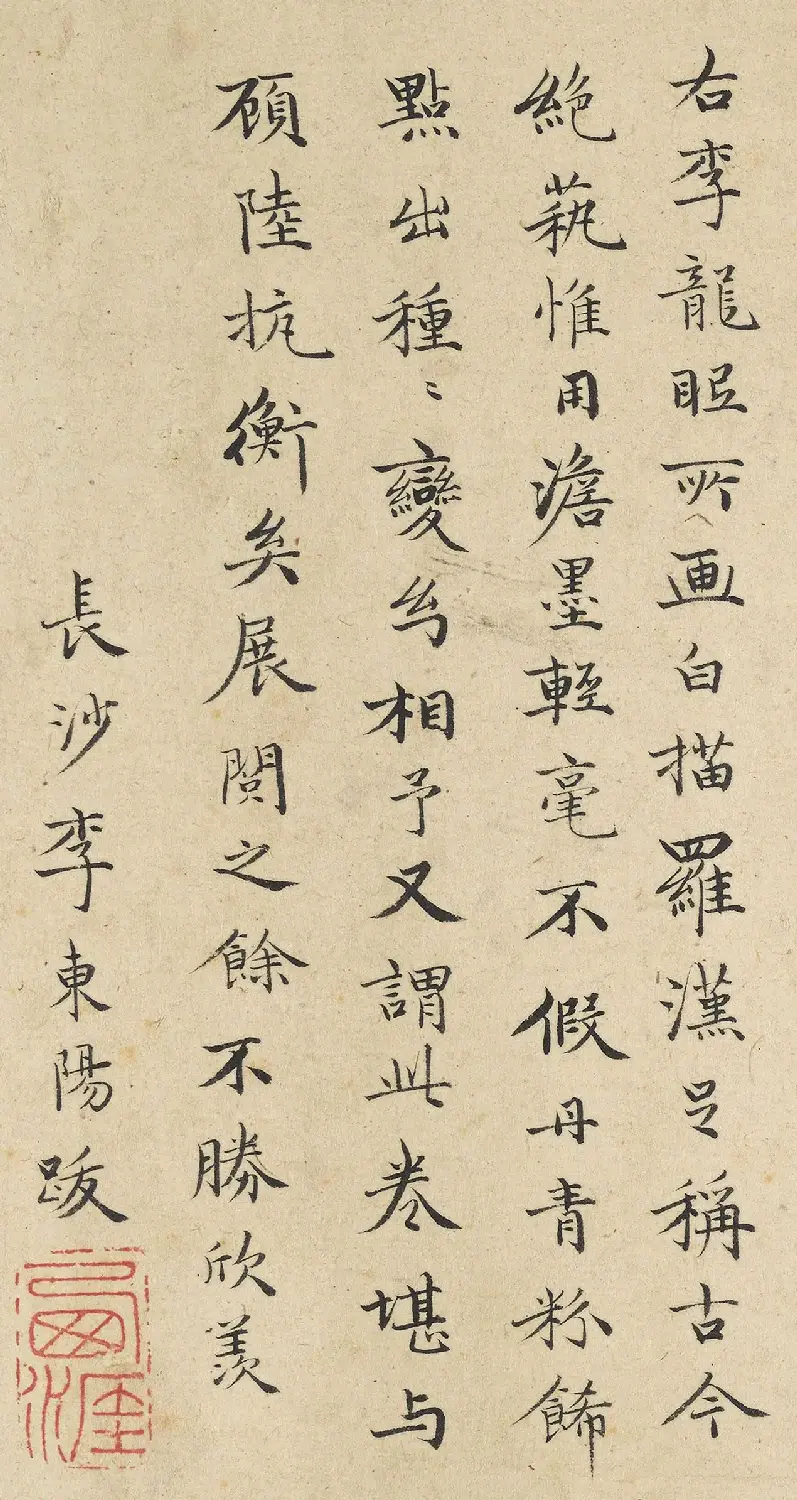 右李龍眠所画白描羅漢足稱古今
絶蓺惟用澹墨輕毫不假丹青粉餙
點出種〻變幻相予又謂此卷堪与
顧陸抗衡矣展閱之餘不勝欣羡
長沙李東陽跋
西涯